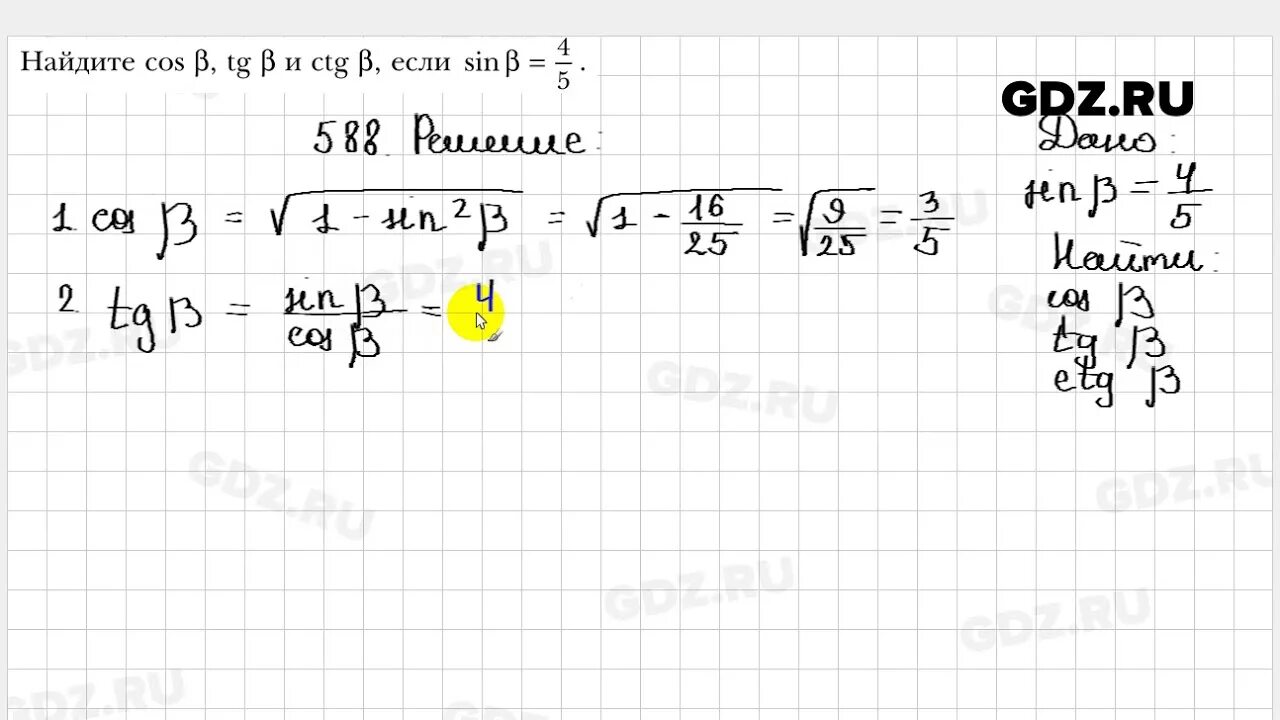 Найдите cos β, tg β и ctg β, если sin β = 4/5.
GDZ.RU
588. Решение:
1. cos β = √(1 - sin²β) = √(1 - 16/25) = √(9/25) = 3/5
2. tg β = sin β / cos β = 4
Дано:
sin β = 4/5
Найти:
cos β
tg β
ctg β
GDZ.RU
GDZ.RU
GDZ.RU
GDZ.RU
GDZ.RU
GDZ.RU
GDZ.RU
GDZ.RU
GDZ.RU
GDZ.RU